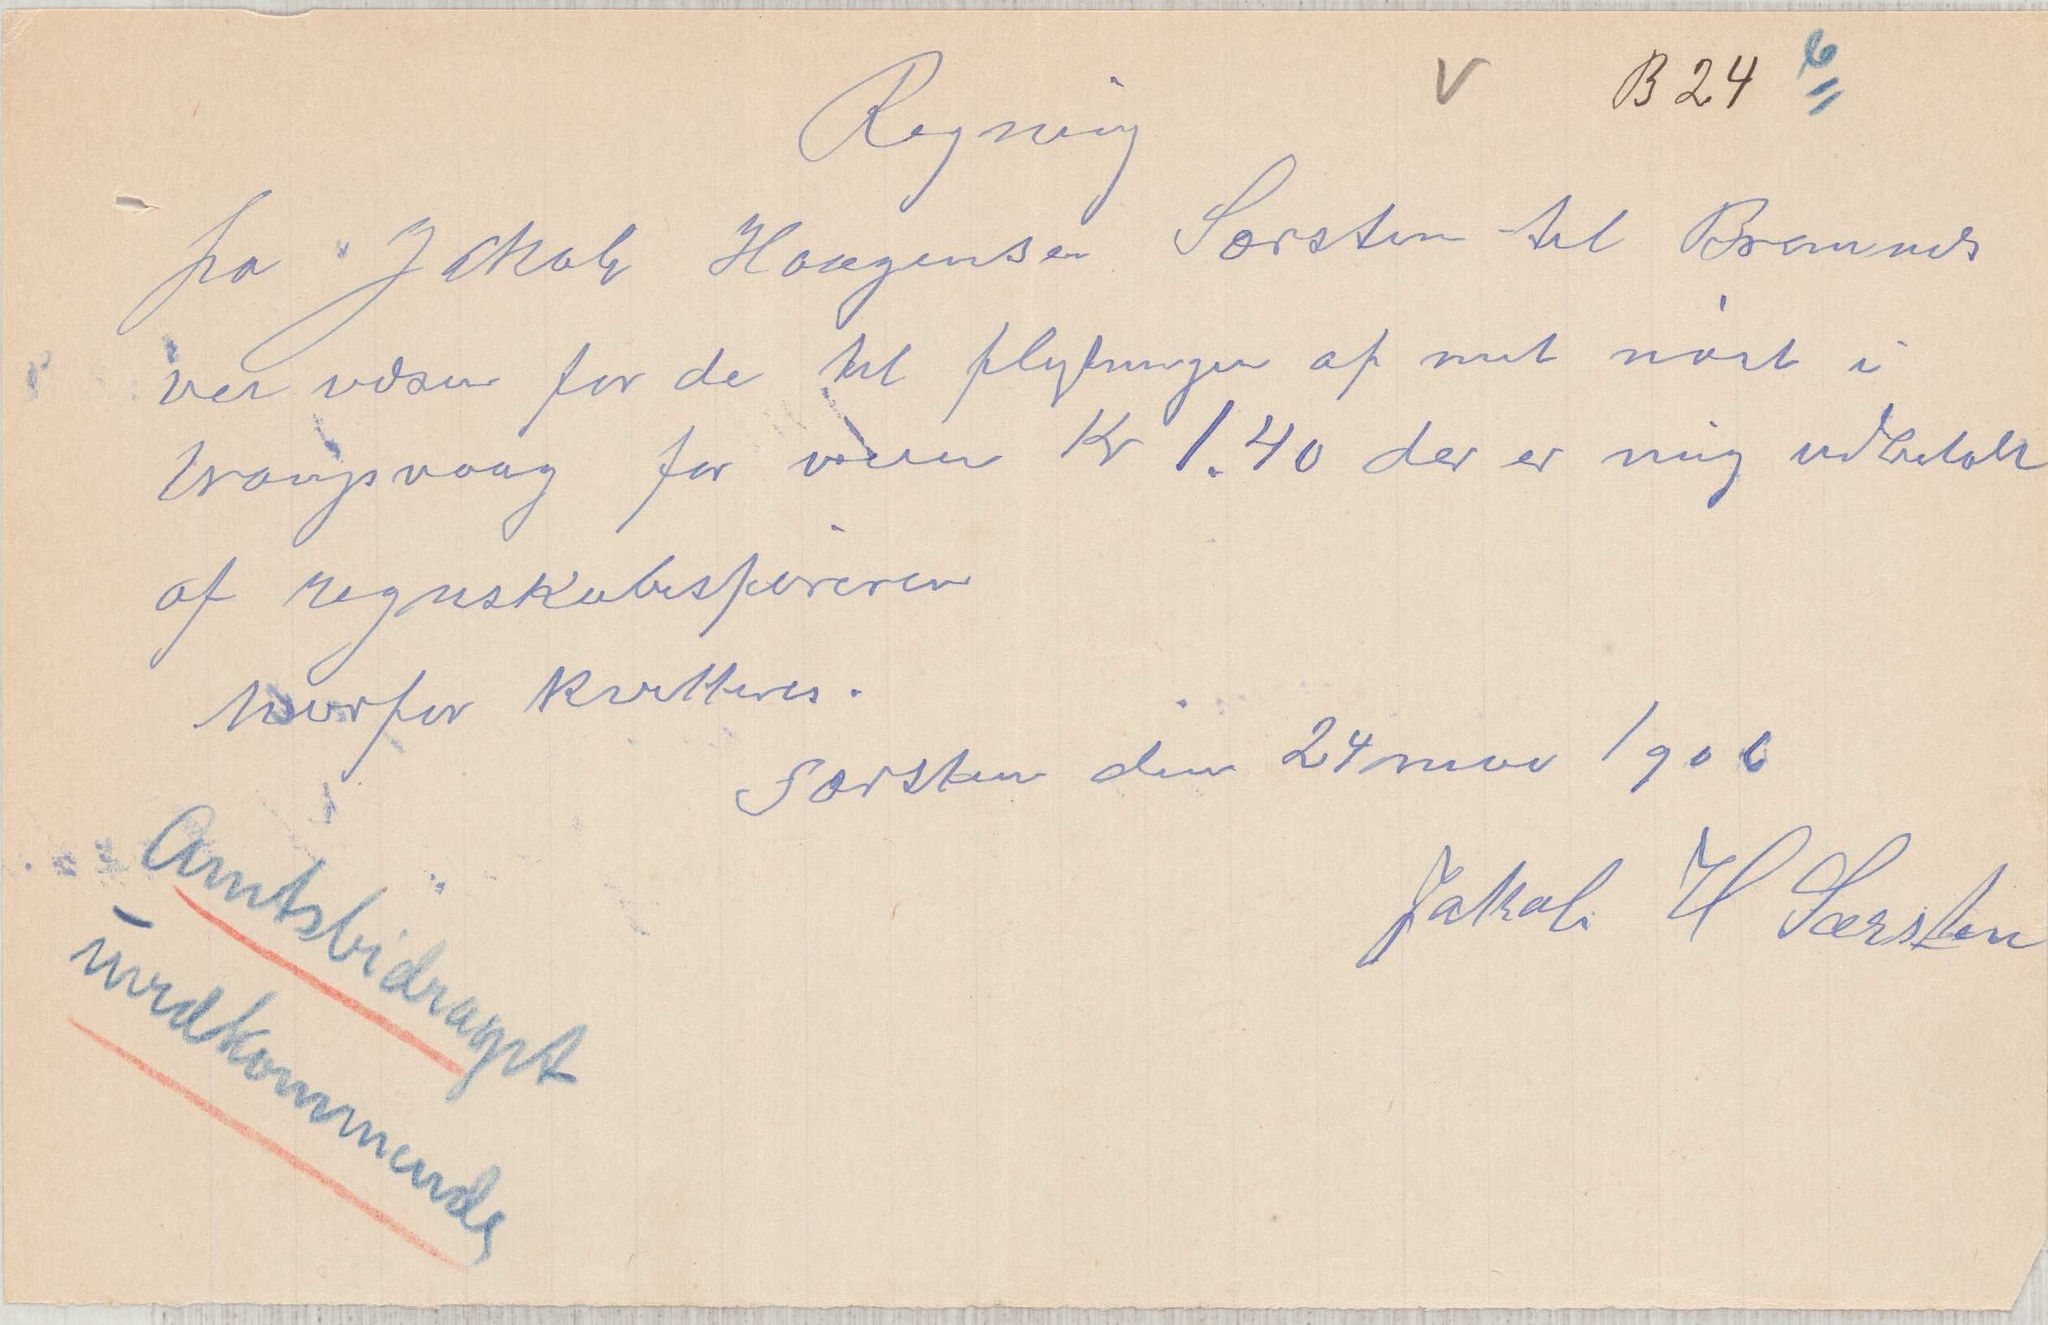 V B24 6
Regning
fra Jakob Haagensen Sørsten til Bremnes
vei væsen for de til flytningen af mit nøst i
Vrangsvaag for veien Kr 1.40 der er mig udbetalt
af regnskabsføreren
hvorfor kvitteres.
Sørsten den 24 nov 1906
Jakob H Sørsten
Amtsbidraget
uvedkommende